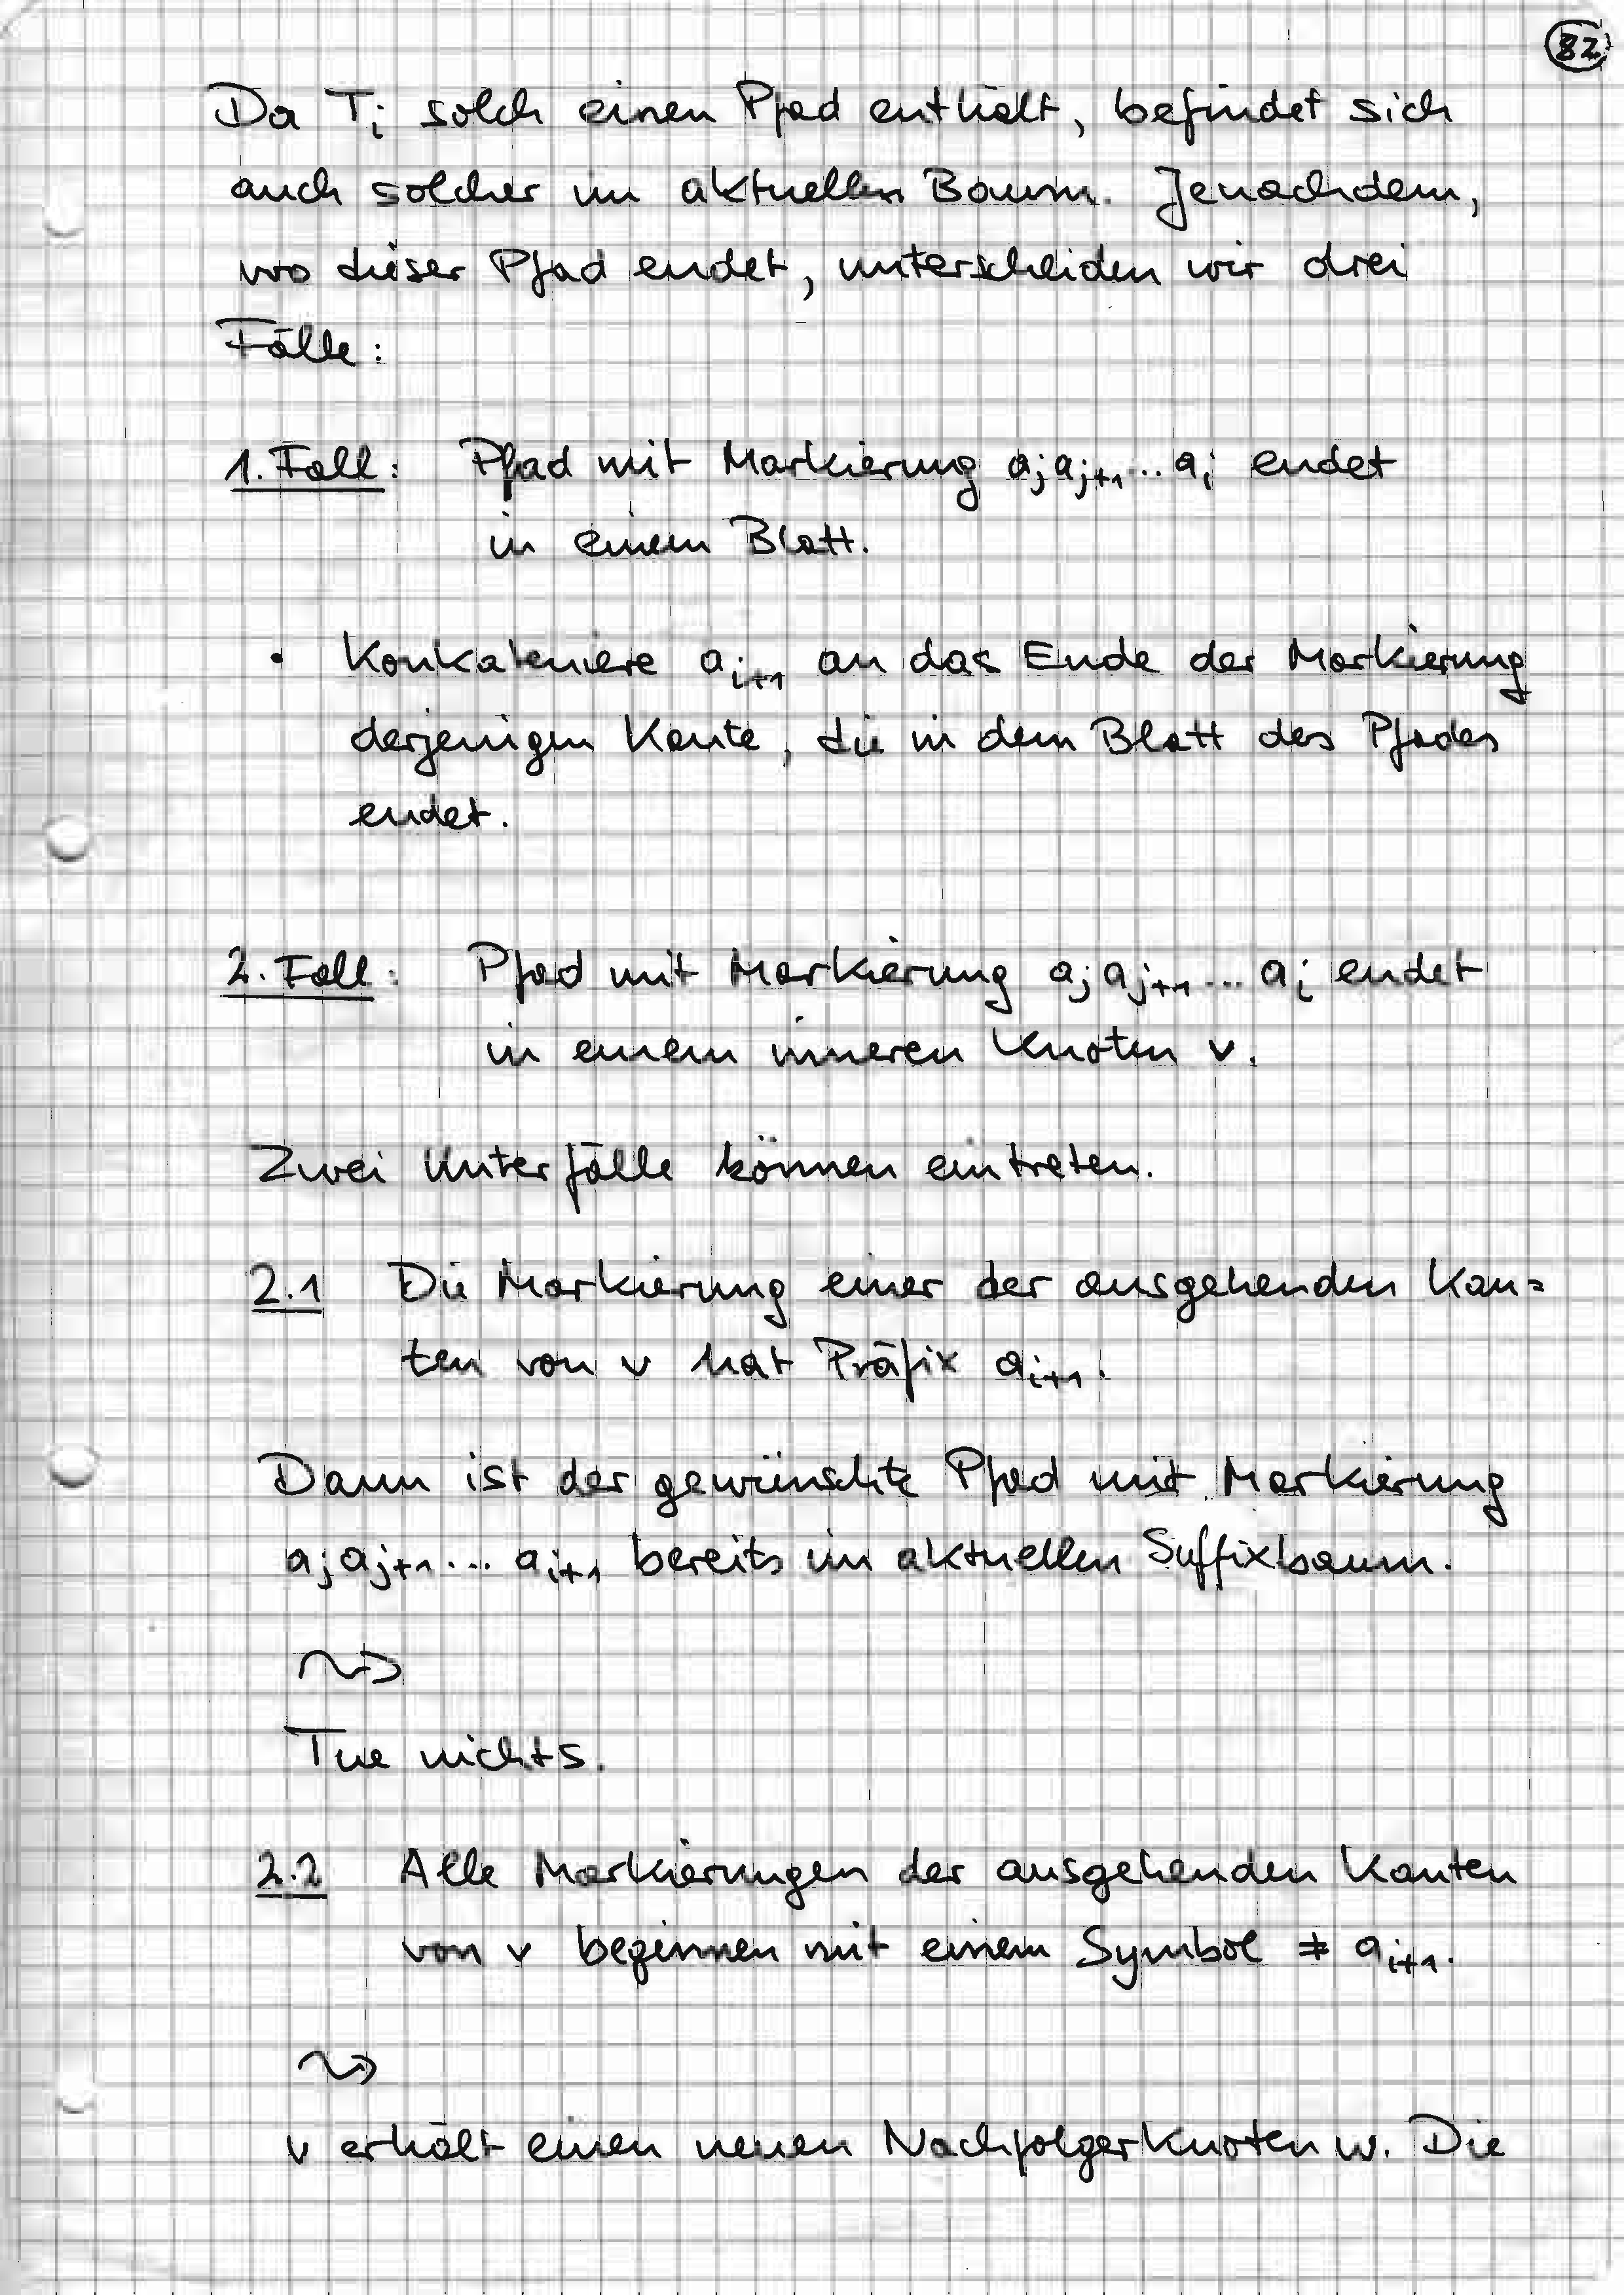 82
Da T_i solch einen Pfad enthält, befindet sich
auch solcher im aktuellen Baum. Jenachdem,
wo dieser Pfad endet, unterscheiden wir drei
Fälle:
1. Fall: Pfad mit Markierung a_j a_{j+1} ... a_i endet
in einem Blatt.
• Konkateniere a_{i+1} an das Ende der Markierung
derjenigen Kante, die in dem Blatt des Pfades
endet.
2. Fall: Pfad mit Markierung a_j a_{j+1} ... a_i endet
in einem inneren Knoten v.
Zwei Unterfälle können eintreten.
2.1 Die Markierung einer der ausgehenden Kan=
ten von v hat Präfix a_{i+1}.
Dann ist der gewünschte Pfad mit Markierung
a_j a_{j+1} ... a_{i+1} bereits im aktuellen Suffixbaum.
⇝
Tue nichts.
2.2 Alle Markierungen der ausgehenden Kanten
von v beginnen mit einem Symbol ≠ a_{i+1}.
⇝
v erhält einen neuen Nachfolgerknoten w. Die